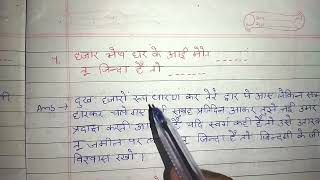 1. हजार भेष धर के आई मौत
तू जिन्दा है तो
Ans → दुख हजारों रूप धारण कर तेरे द्वार पे आए लेकिन सब
हारकर चले गए सुबह प्रतिदिन आकर तुझे नई उमर
प्रदान करती है यदि स्वर्ग कहीं है तो उसे उतार
ला जमीन पर तू जिन्दा है तो जिन्दगी की जीत
विश्वास रखो ।